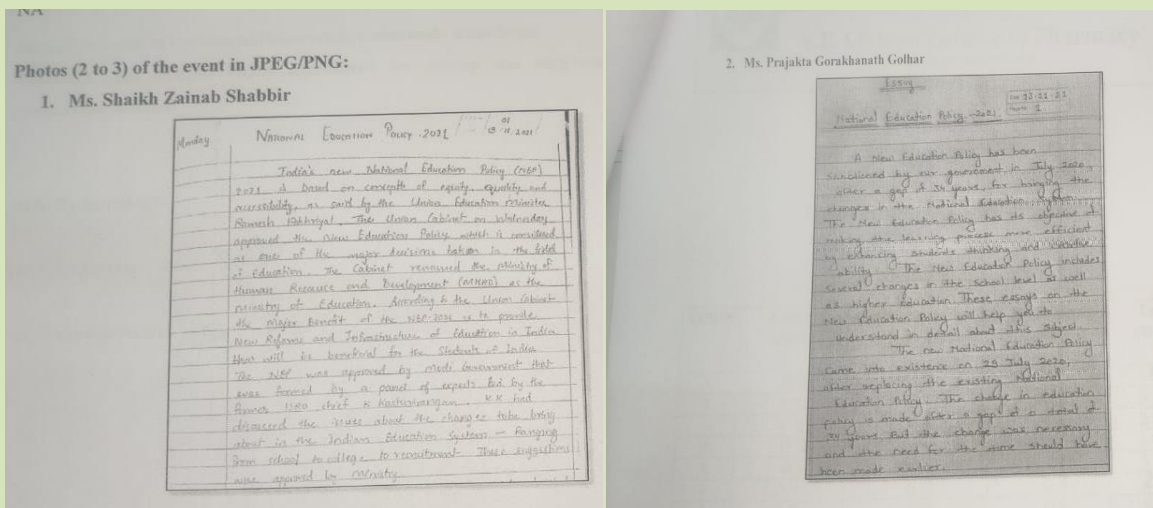 NA
Photos (2 to 3) of the event in JPEG/PNG:
1. Ms. Shaikh Zainab Shabbir
Monday
NATIONAL EDUCATION POLICY - 2021
India's new National Education Policy (NEP)
2021 is based on concepts of equity, equality and
accessibility, as said by the Union Education Minister
Ramesh Pokhriyal. The Union Cabinet on Wednesday
approved the New Education Policy which is considered
as one of the major decisions taken in the field
of Education. The Cabinet renamed the Ministry of
Human Resource and Development (MHRD) as the
Ministry of Education. According to the Union Cabinet
the major benefit of the NEP-2021 is to provide
New Reforms and Infrastructure of Education in India
that will be beneficial for the Students of India
The NEP was approved by Modi Government that
was formed by a panel of experts led by the
former ISRO chief K Kasturirangan. KK had
discussed the issues about the changes to be bring
about in the Indian Education System - Ranging
from school to college to recruitment These suggestions
was approved by Ministry
2. Ms. Prajakta Gorakhanath Golhar
Essay
13-11-21
1
National Education Policy -2021
A New Education Policy has been
sanctioned by our government in July 2020,
after a gap of 34 years, for bringing the
changes in the National Education
The New Education Policy has its objective of
making the learning process more efficient
by enhancing students thinking and
ability. The New Education Policy includes
several changes in the school level as well
as higher education. These essays on the
New Education Policy will help you to
understand in detail about this subject.
The new National Education Policy
came into existence on 29 July 2020,
after replacing the existing National
Education Policy. The change in education
policy is made after a gap of a total of
34 years. But the change was necessary
and the need for the time should have
been made earlier.